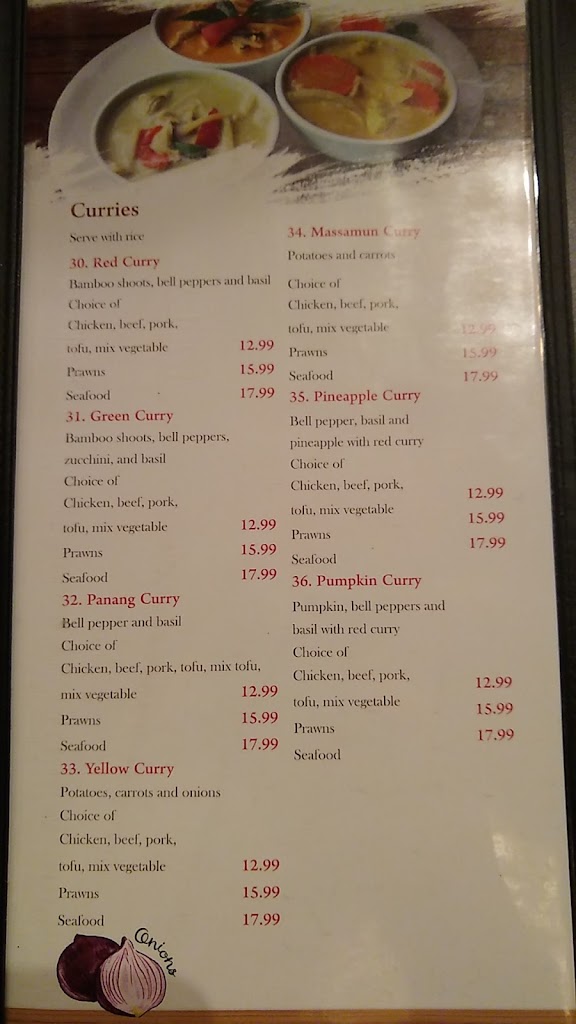 Curries
Serve with rice
30. Red Curry
Bamboo shoots, bell peppers and basil
Choice of
Chicken, beef, pork,
tofu, mix vegetable 12.99
Prawns 15.99
Seafood 17.99
31. Green Curry
Bamboo shoots, bell peppers,
zucchini, and basil
Choice of
Chicken, beef, pork,
tofu, mix vegetable 12.99
Prawns 15.99
Seafood 17.99
32. Panang Curry
Bell pepper and basil
Choice of
Chicken, beef, pork, tofu, mix tofu,
mix vegetable 12.99
Prawns 15.99
Seafood 17.99
33. Yellow Curry
Potatoes, carrots and onions
Choice of
Chicken, beef, pork,
tofu, mix vegetable 12.99
Prawns 15.99
Seafood 17.99
Onions
34. Massamun Curry
Potatoes and carrots
Choice of
Chicken, beef, pork,
tofu, mix vegetable 12.99
Prawns 15.99
Seafood 17.99
35. Pineapple Curry
Bell pepper, basil and
pineapple with red curry
Choice of
Chicken, beef, pork,
tofu, mix vegetable 12.99
Prawns 15.99
Seafood 17.99
36. Pumpkin Curry
Pumpkin, bell peppers and
basil with red curry
Choice of
Chicken, beef, pork,
tofu, mix vegetable 12.99
Prawns 15.99
Seafood 17.99